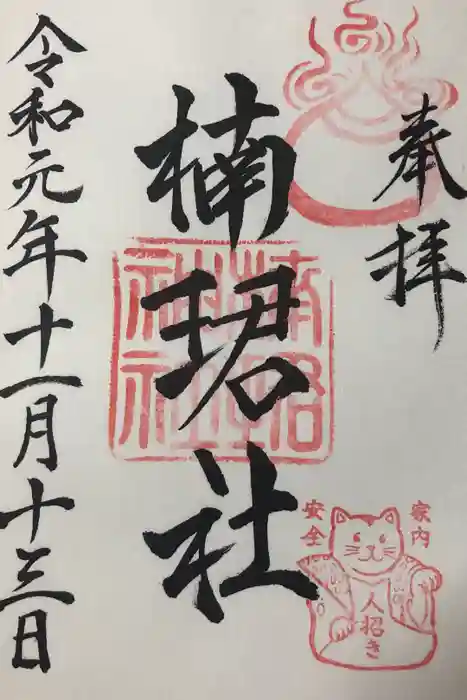 奉拝
楠珺社
令和元年十一月十三日
楠珺
神社
家内
安全
人招き